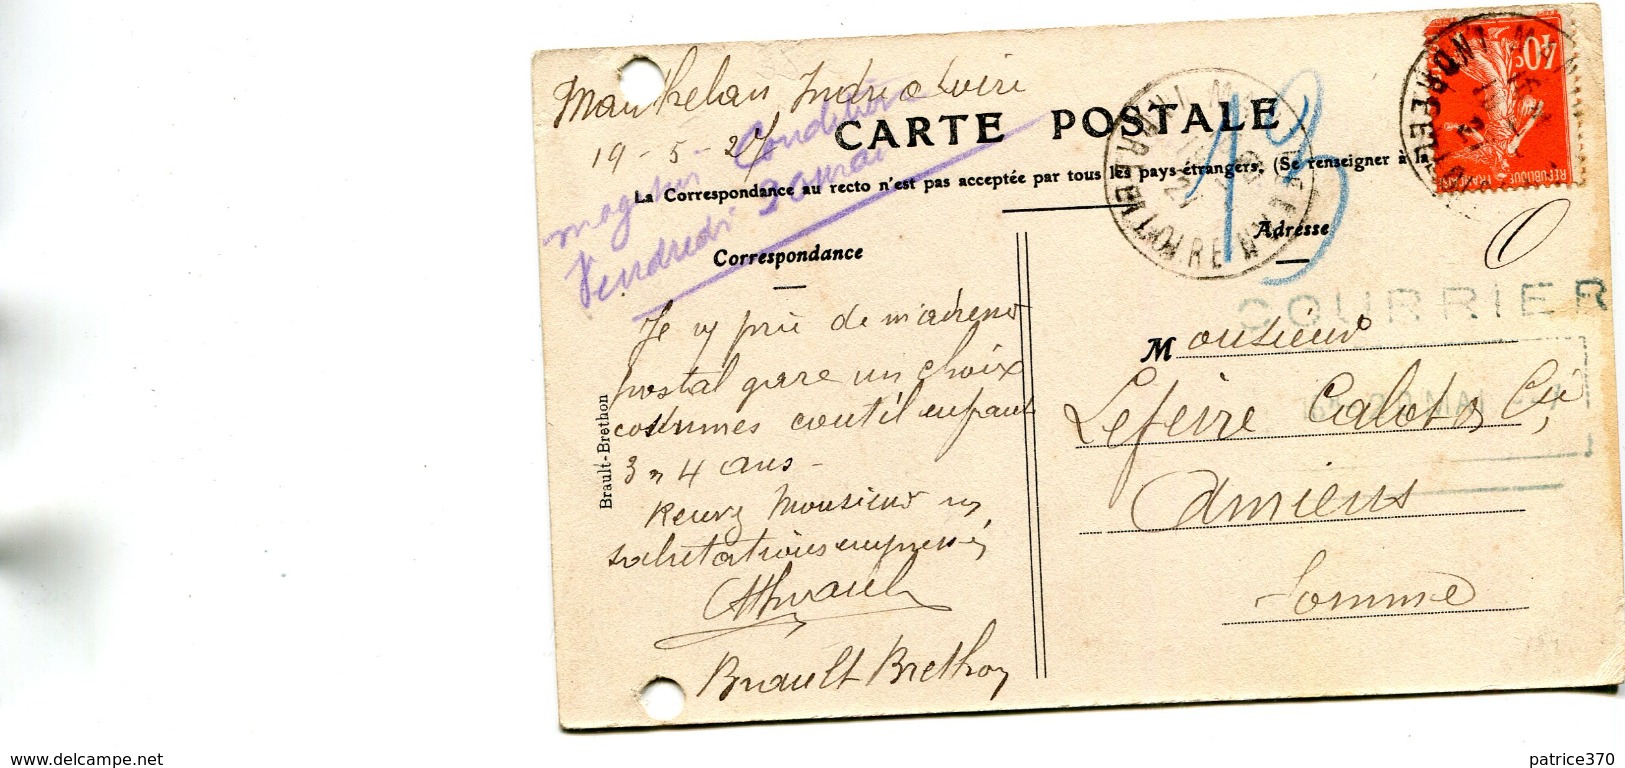 Manthelan Indre & Loire
19 - 5 - 27
CARTE POSTALE
La Correspondance au recto n'est pas acceptée par tous les pays-étrangers. (Se renseigner à la
magasin Condition
Vendredi 20 mai
13
Correspondance
Je vs prie de m'adresser
postal gare un choix
costumes coutil enfant
3 à 4 ans -
Recevez Monsieur mes
salutations empressées
Brault Brethon
Brault-Brethon
Adresse
COURRIER
20 MAI
Monsieur
Lefevre Calot & Cie,
Amiens
Somme
MANTHELAN
INDRE ET LOIRE
40c
REPUBLIQUE FRANÇAISE
patrice370